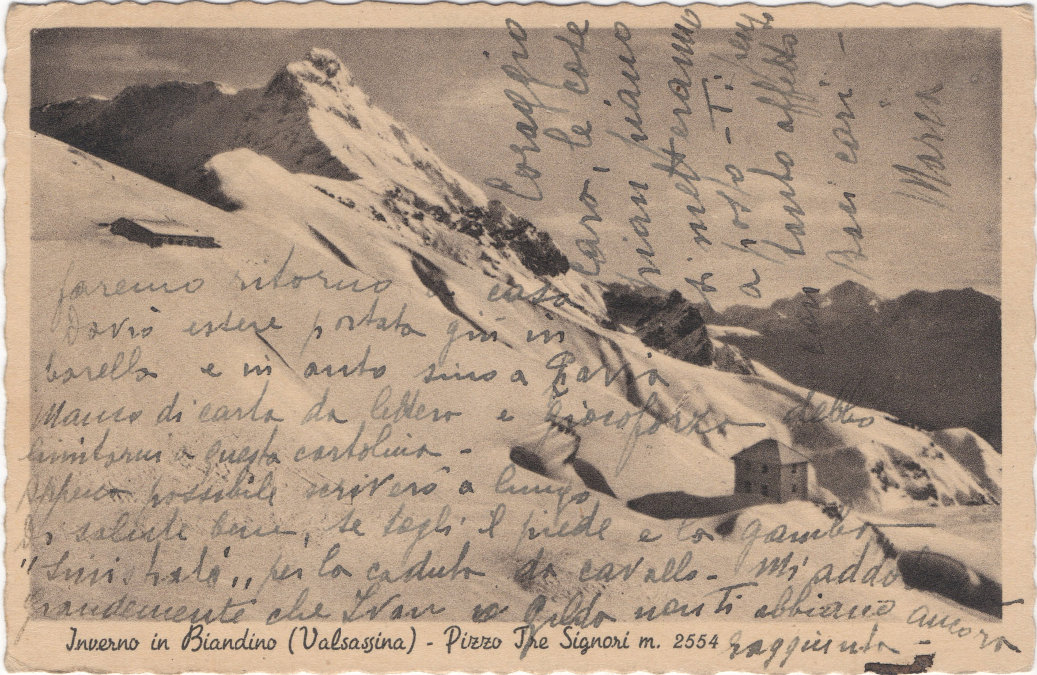 faremo ritorno a casa
Dovrò essere portata giù in
barella e in auto sino a Pavia
Manco di carta da lettere e giocoforza debbo
limitarmi a questa cartolina -
Appena possibile scriverò a lungo
Di salute bene, se togli il piede e la gamba
"Sinistrata" per la caduta da cavallo - Mi addo
grandemente che Ivan e Gildo non Ti abbiano ancora
raggiunta -
Coraggio
caro, le cose
pian piano
si metteranno
a posto - Ti
tanto affetto
baci cari -
Inverno in Biandino (Valsassina) - Pizzo Tre Signori m. 2554